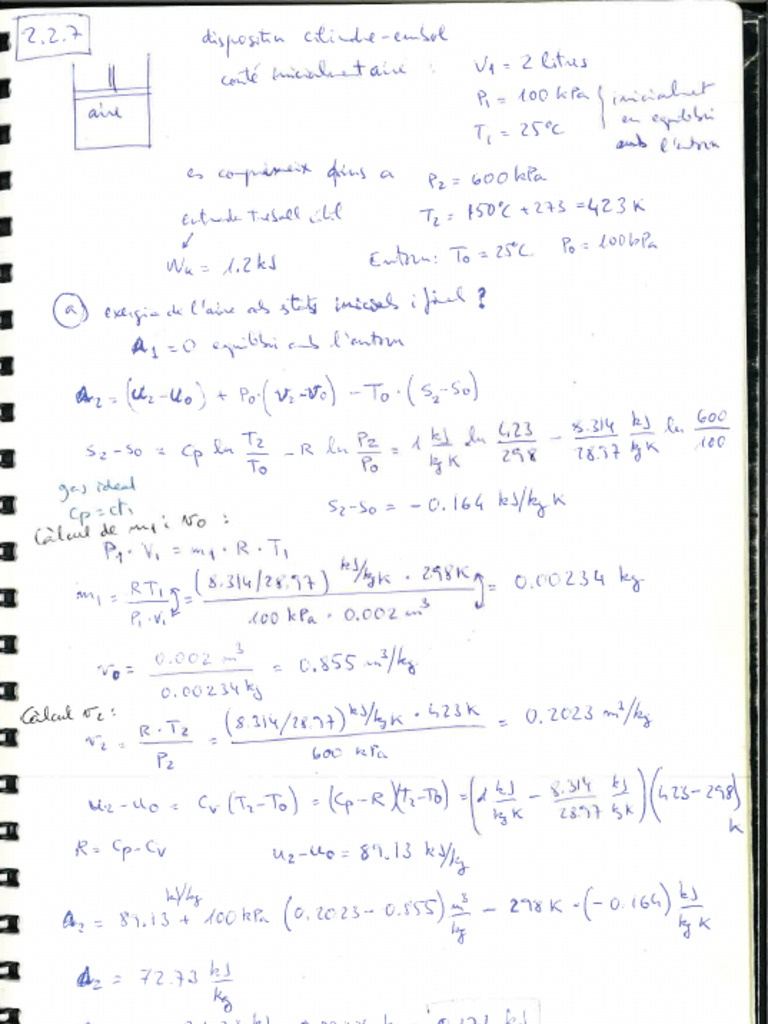 2.2.7
dispositiu cilindre-embol
conté inicialment aire :
V1 = 2 litres
P1 = 100 kPa
T1 = 25°C
inicialment
en equilibri
amb l'entorn
aire
es comprimeix fins a
P2 = 600 kPa
T2 = 150°C + 273 = 423 K
entrada treball útil
Wu = 1.2 kJ
Entorn: T0 = 25°C P0 = 100 kPa
a) exergia de l'aire als estats inicials i final ?
A1 = 0 equilibri amb l'entorn
A2 = (u2 - u0) + P0·(v2 - v0) - T0·(s2 - s0)
s2 - s0 = Cp ln T2/T0 - R ln P2/P0 = 1 kJ/kg K ln 423/298 - 8.314/28.97 kJ/kg K ln 600/100
gas ideal
Cp = ct.
s2 - s0 = -0.164 kJ/kg K
Càlcul de m1 i v0 :
P1 · V1 = m1 · R · T1
m1 = RT1/P1·V1 = (8.314/28.97) kJ/kgK · 298K / 100 kPa · 0.002 m³ = 0.00234 kg
v0 = 0.002 m³ / 0.00234 kg = 0.855 m³/kg
Càlcul v2 :
v2 = R·T2/P2 = (8.314/28.97) kJ/kgK · 423 K / 600 kPa = 0.2023 m³/kg
u2 - u0 = Cv (T2 - T0) = (Cp - R)(T2 - T0) = (1 kJ/kg K - 8.314/28.97 kJ/kg K)(423 - 298) K
R = Cp - Cv
u2 - u0 = 89.13 kJ/kg
A2 = 89.13 kJ/kg + 100 kPa (0.2023 - 0.855) m³/kg - 298 K · (-0.164) kJ/kg K
A2 = 72.73 kJ/kg